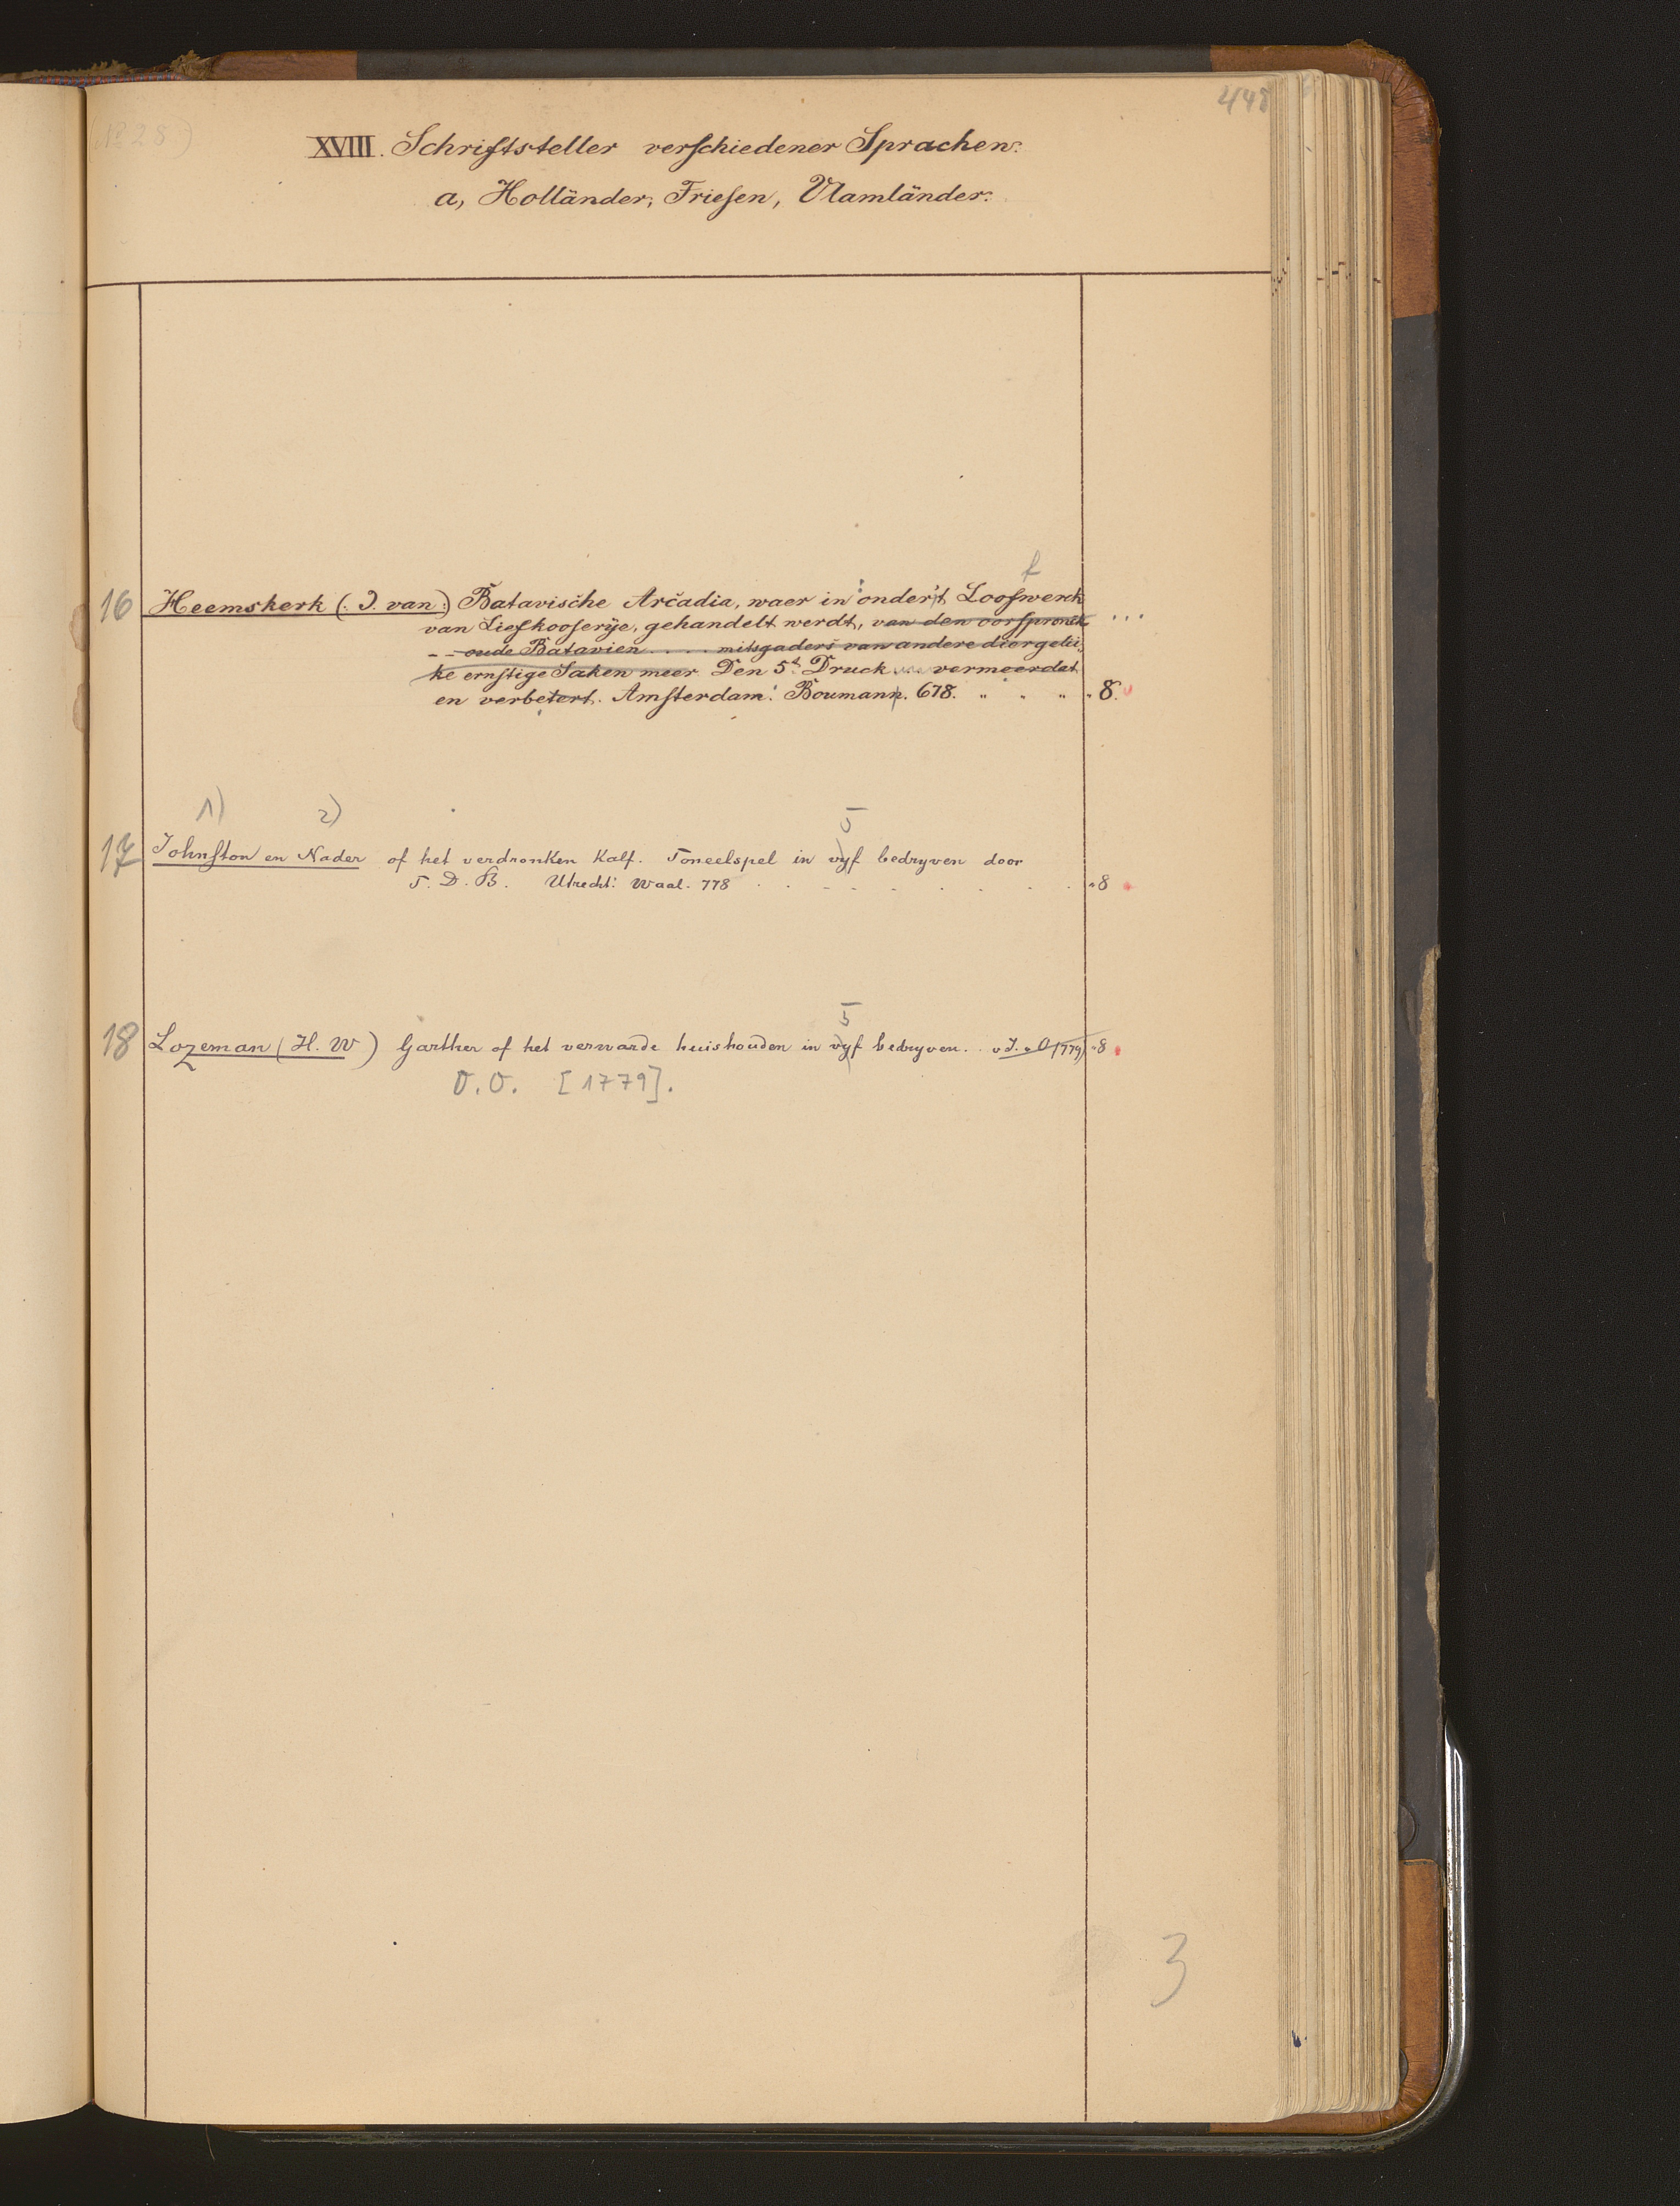 448
XVIII. Schriftsteller verschiedener Sprachen.
a, Holländer, Friesen, Vlamländer.
f
16 Heemskerk (. J. van:) Batavische Arcadia, waer in onder't Loofwerck
van Liefkooserÿe, gehandelt werdt, van den oorspronck ...
-- oude Batavien .... mitsgaders van andere diergelii-
ke ernstige Saken meer. Den 5t Druck vermeerdet
en verbetert. Amsterdam: Boumann. 678. " " " " 8.
1) 2) 5
17 Johnston en Nader of het verdronken Kalf. Toneelspel in vyf bedryven door
T. D. B. Utrecht: Waal. 778 . . - - . . . . . "8
5
18 Lozeman (H. W) Garther of het verwarde huishouden in vyf bedryven. . o J. u O (779) "8
O. O. [1779].
3